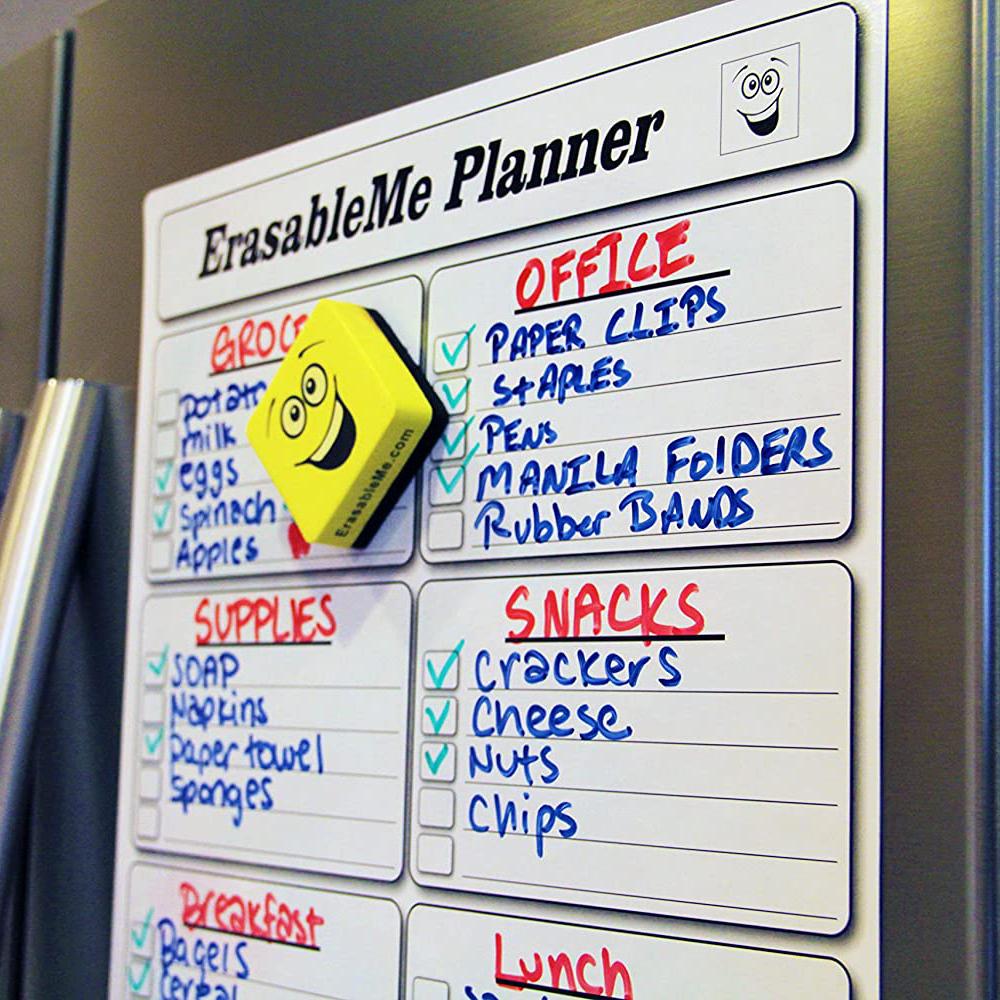 ErasableMe Planner
OFFICE
PAPER CLIPS
StAPLES
PENs
MANILA FolDERS
Rubber BANDS
milk
eggs
Spinach
Apples
ErasableMe.com
SUPPLIES
SOAP
Napkins
Paper towel
Sponges
SNACKS
Crackers
Cheese
Nuts
Chips
Breakfast
Bagels
Cereal
Lunch